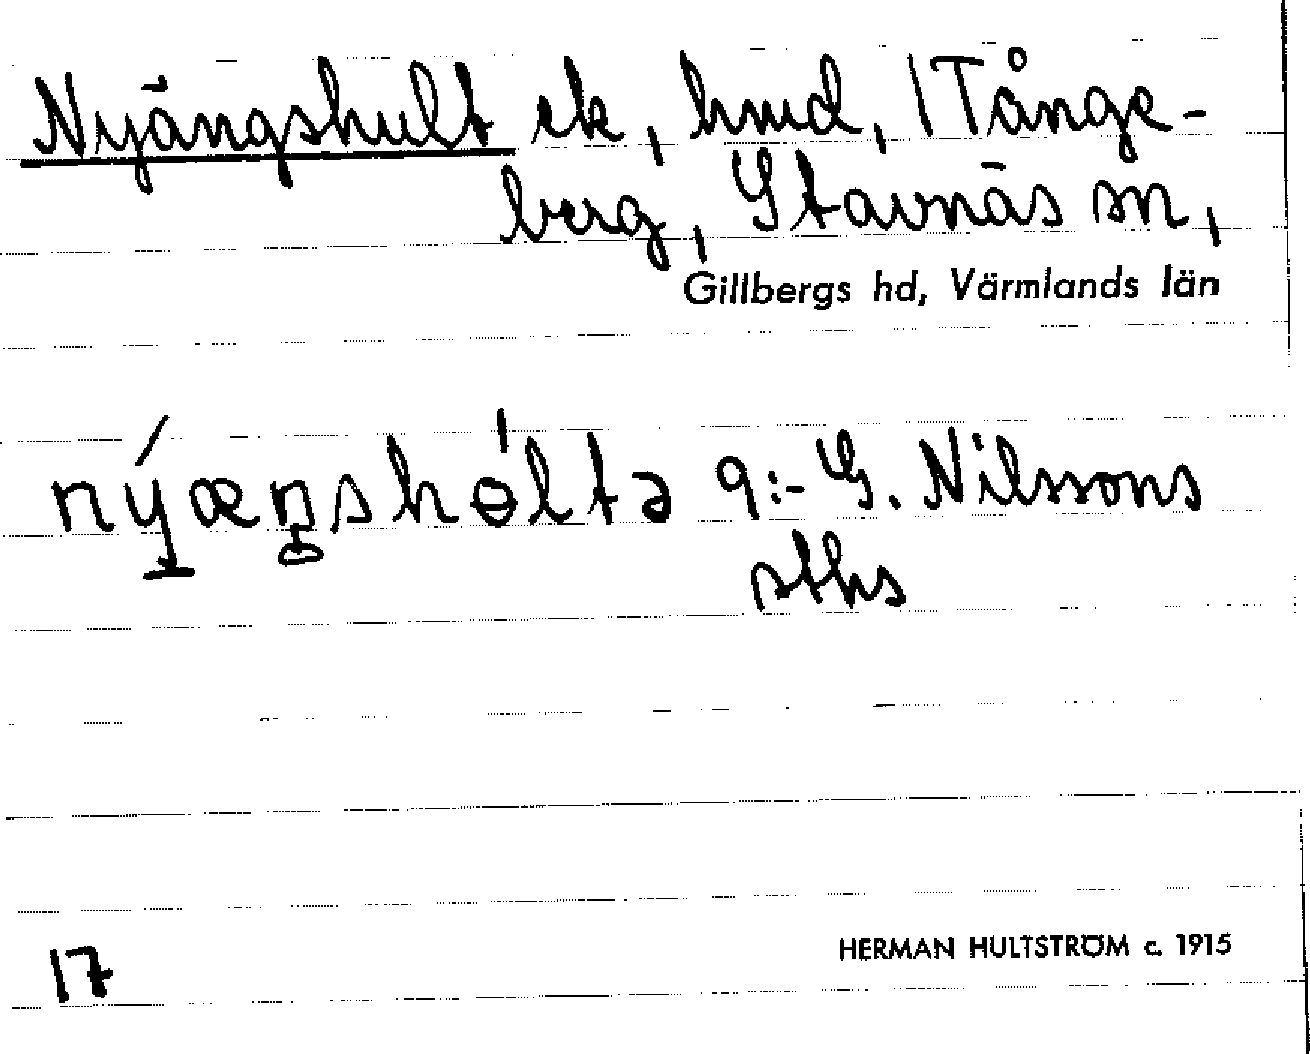 Nyängshult ek, hmd, 1 Tånge-
berg, Stavnäs sn,
Gillbergs hd, Värmlands län
nýæŋshɵ́ltə 9:- G. Nilssons
sths
17
HERMAN HULTSTRÖM c. 1915